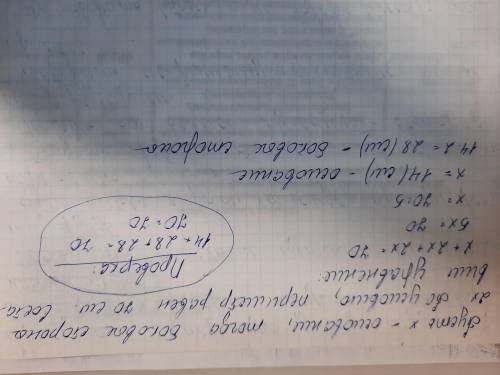 Пусть x - основание, тогда боковая сторона
2x по условию, периметр равен 70 см. Соста-
вим уравнение:
x + 2x + 2x = 70
5x = 70
x = 70:5
x = 14 (см) - основание
14·2 = 28 (см) - боковая сторона
Проверка:
14 + 28 + 28 = 70
70 = 70